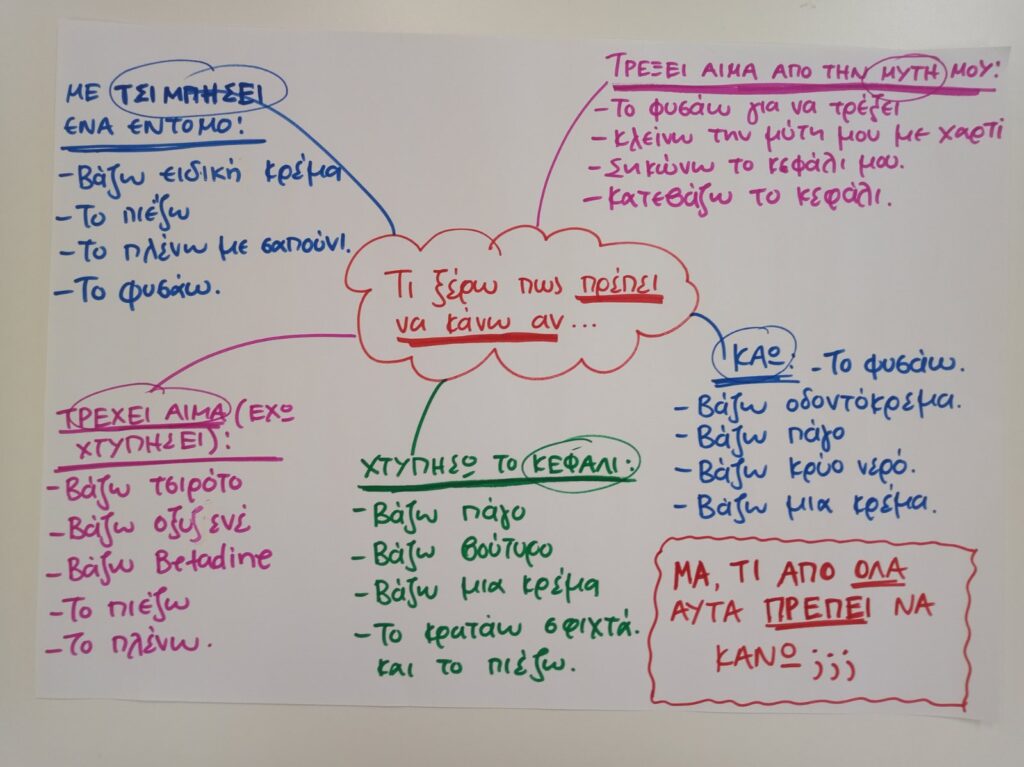 ΜΕ ΤΣΙΜΠΗΣΕΙ
ΕΝΑ ΕΝΤΟΜΟ:
- Βάζω ειδική κρέμα
- Το πιέζω
- Το πλένω με σαπούνι.
- Το φυσάω.
ΤΡΕΞΕΙ ΑΙΜΑ ΑΠΟ ΤΗΝ ΜΥΤΗ ΜΟΥ:
- Το φυσάω για να τρέξει
- Κλείνω την μύτη μου με χαρτί
- Σηκώνω το κεφάλι μου.
- Κατεβάζω το κεφάλι.
Τι ξέρω πως πρέπει
να κάνω αν...
ΚΑΩ: - Το φυσάω.
- Βάζω οδοντόκρεμα.
- Βάζω πάγο
- Βάζω κρύο νερό.
- Βάζω μια κρέμα.
ΤΡΕΧΕΙ ΑΙΜΑ (ΕΧΩ
ΧΤΥΠΗΣΕΙ):
- Βάζω τσιρότο
- Βάζω οξυζενέ
- Βάζω Betadine
- Το πιέζω
- Το πλένω.
ΧΤΥΠΗΣΩ ΤΟ ΚΕΦΑΛΙ:
- Βάζω πάγο
- Βάζω βούτυρο
- Βάζω μια κρέμα
- Το κρατάω σφιχτά.
και το πιέζω.
ΜΑ, ΤΙ ΑΠΟ ΟΛΑ
ΑΥΤΑ ΠΡΕΠΕΙ ΝΑ
ΚΑΝΩ;;;